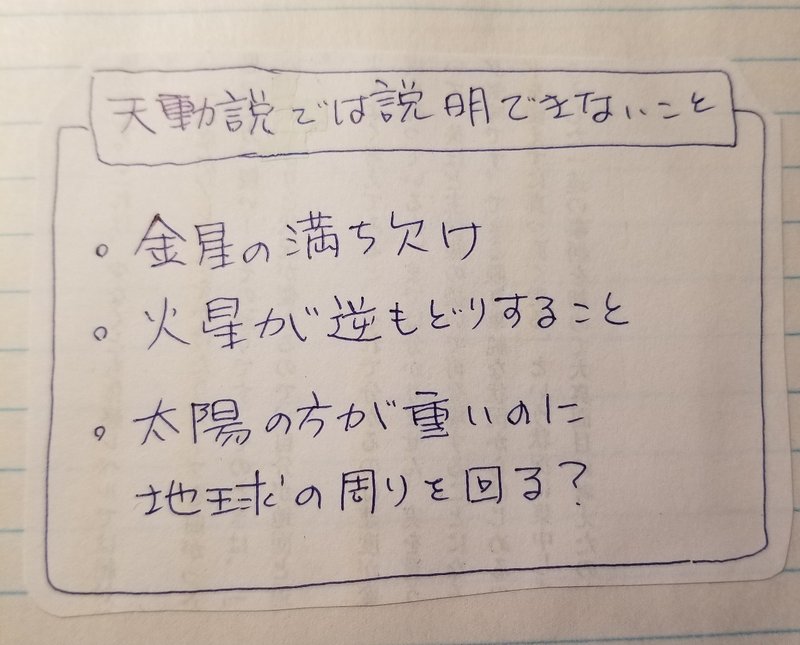 天動説では説明できないこと
。金星の満ち欠け
。火星が逆もどりすること
。太陽の方が重いのに
地球の周りを回る？